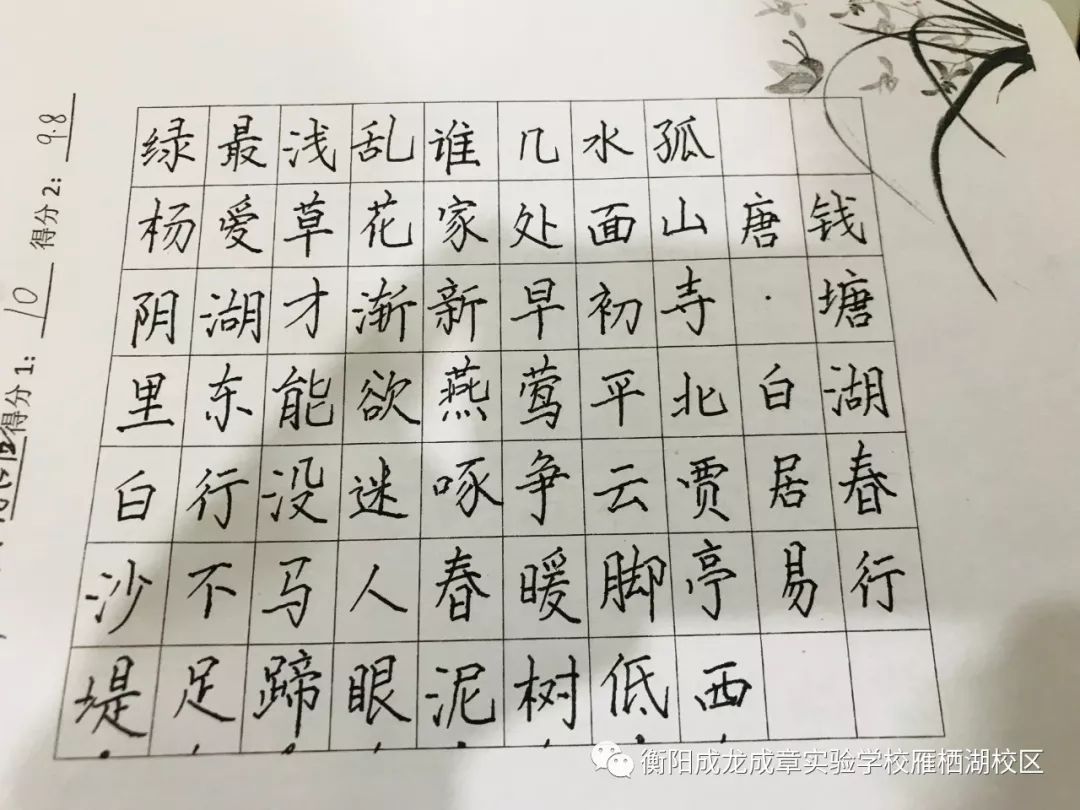 钱塘湖春行
唐·白居易
孤山寺北贾亭西
水面初平云脚低
几处早莺争暖树
谁家新燕啄春泥
乱花渐欲迷人眼
浅草才能没马蹄
最爱湖东行不足
绿杨阴里白沙堤
得分1：10 得分2：9.8
衡阳成龙成章实验学校雁栖湖校区